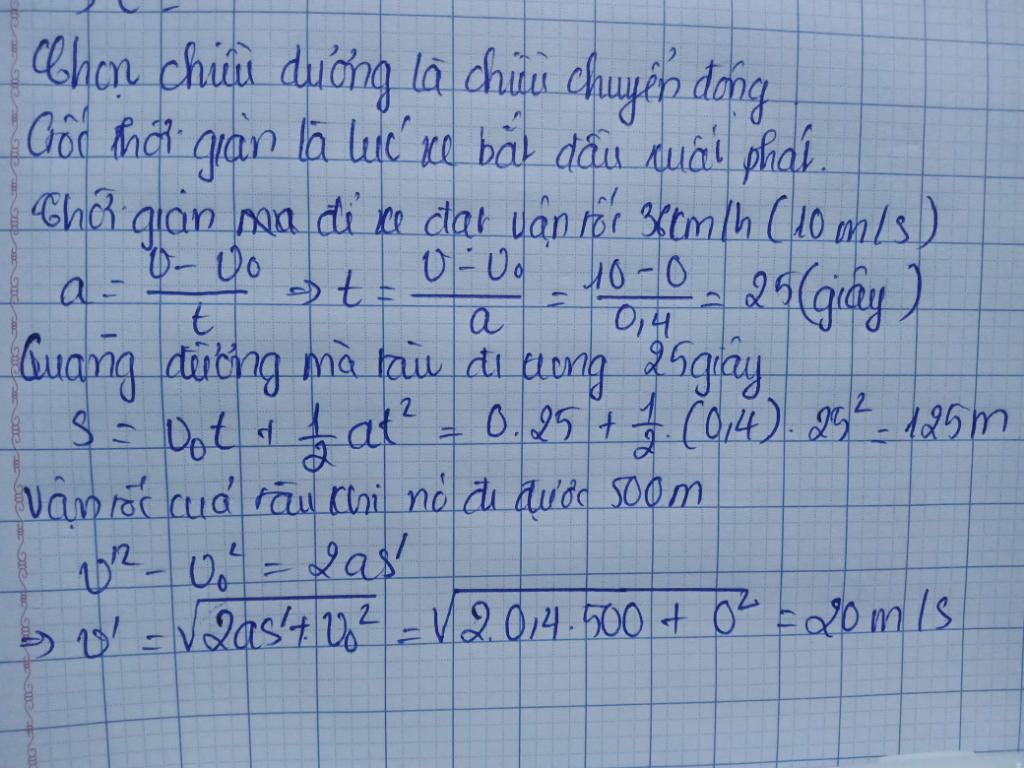 Chọn chiều dương là chiều chuyển động
Gốc thời gian là lúc xe bắt đầu xuất phát.
Thời gian mà đi xe đạt vận tốc 36km/h (10 m/s)
a = \frac{v - v_0}{t} => t = \frac{v - v_0}{a} = \frac{10 - 0}{0,4} = 25 (giây)
Quãng đường mà tàu đi trong 25 giây
s = v_0t + \frac{1}{2} at^2 = 0.25 + \frac{1}{2}.(0,4).25^2 = 125m
Vận tốc của tàu khi nó đi được 500m
v'^2 - v_0^2 = 2as'
=> v' = \sqrt{2as' + v_0^2} = \sqrt{2.0,4.500 + 0^2} = 20 m/s